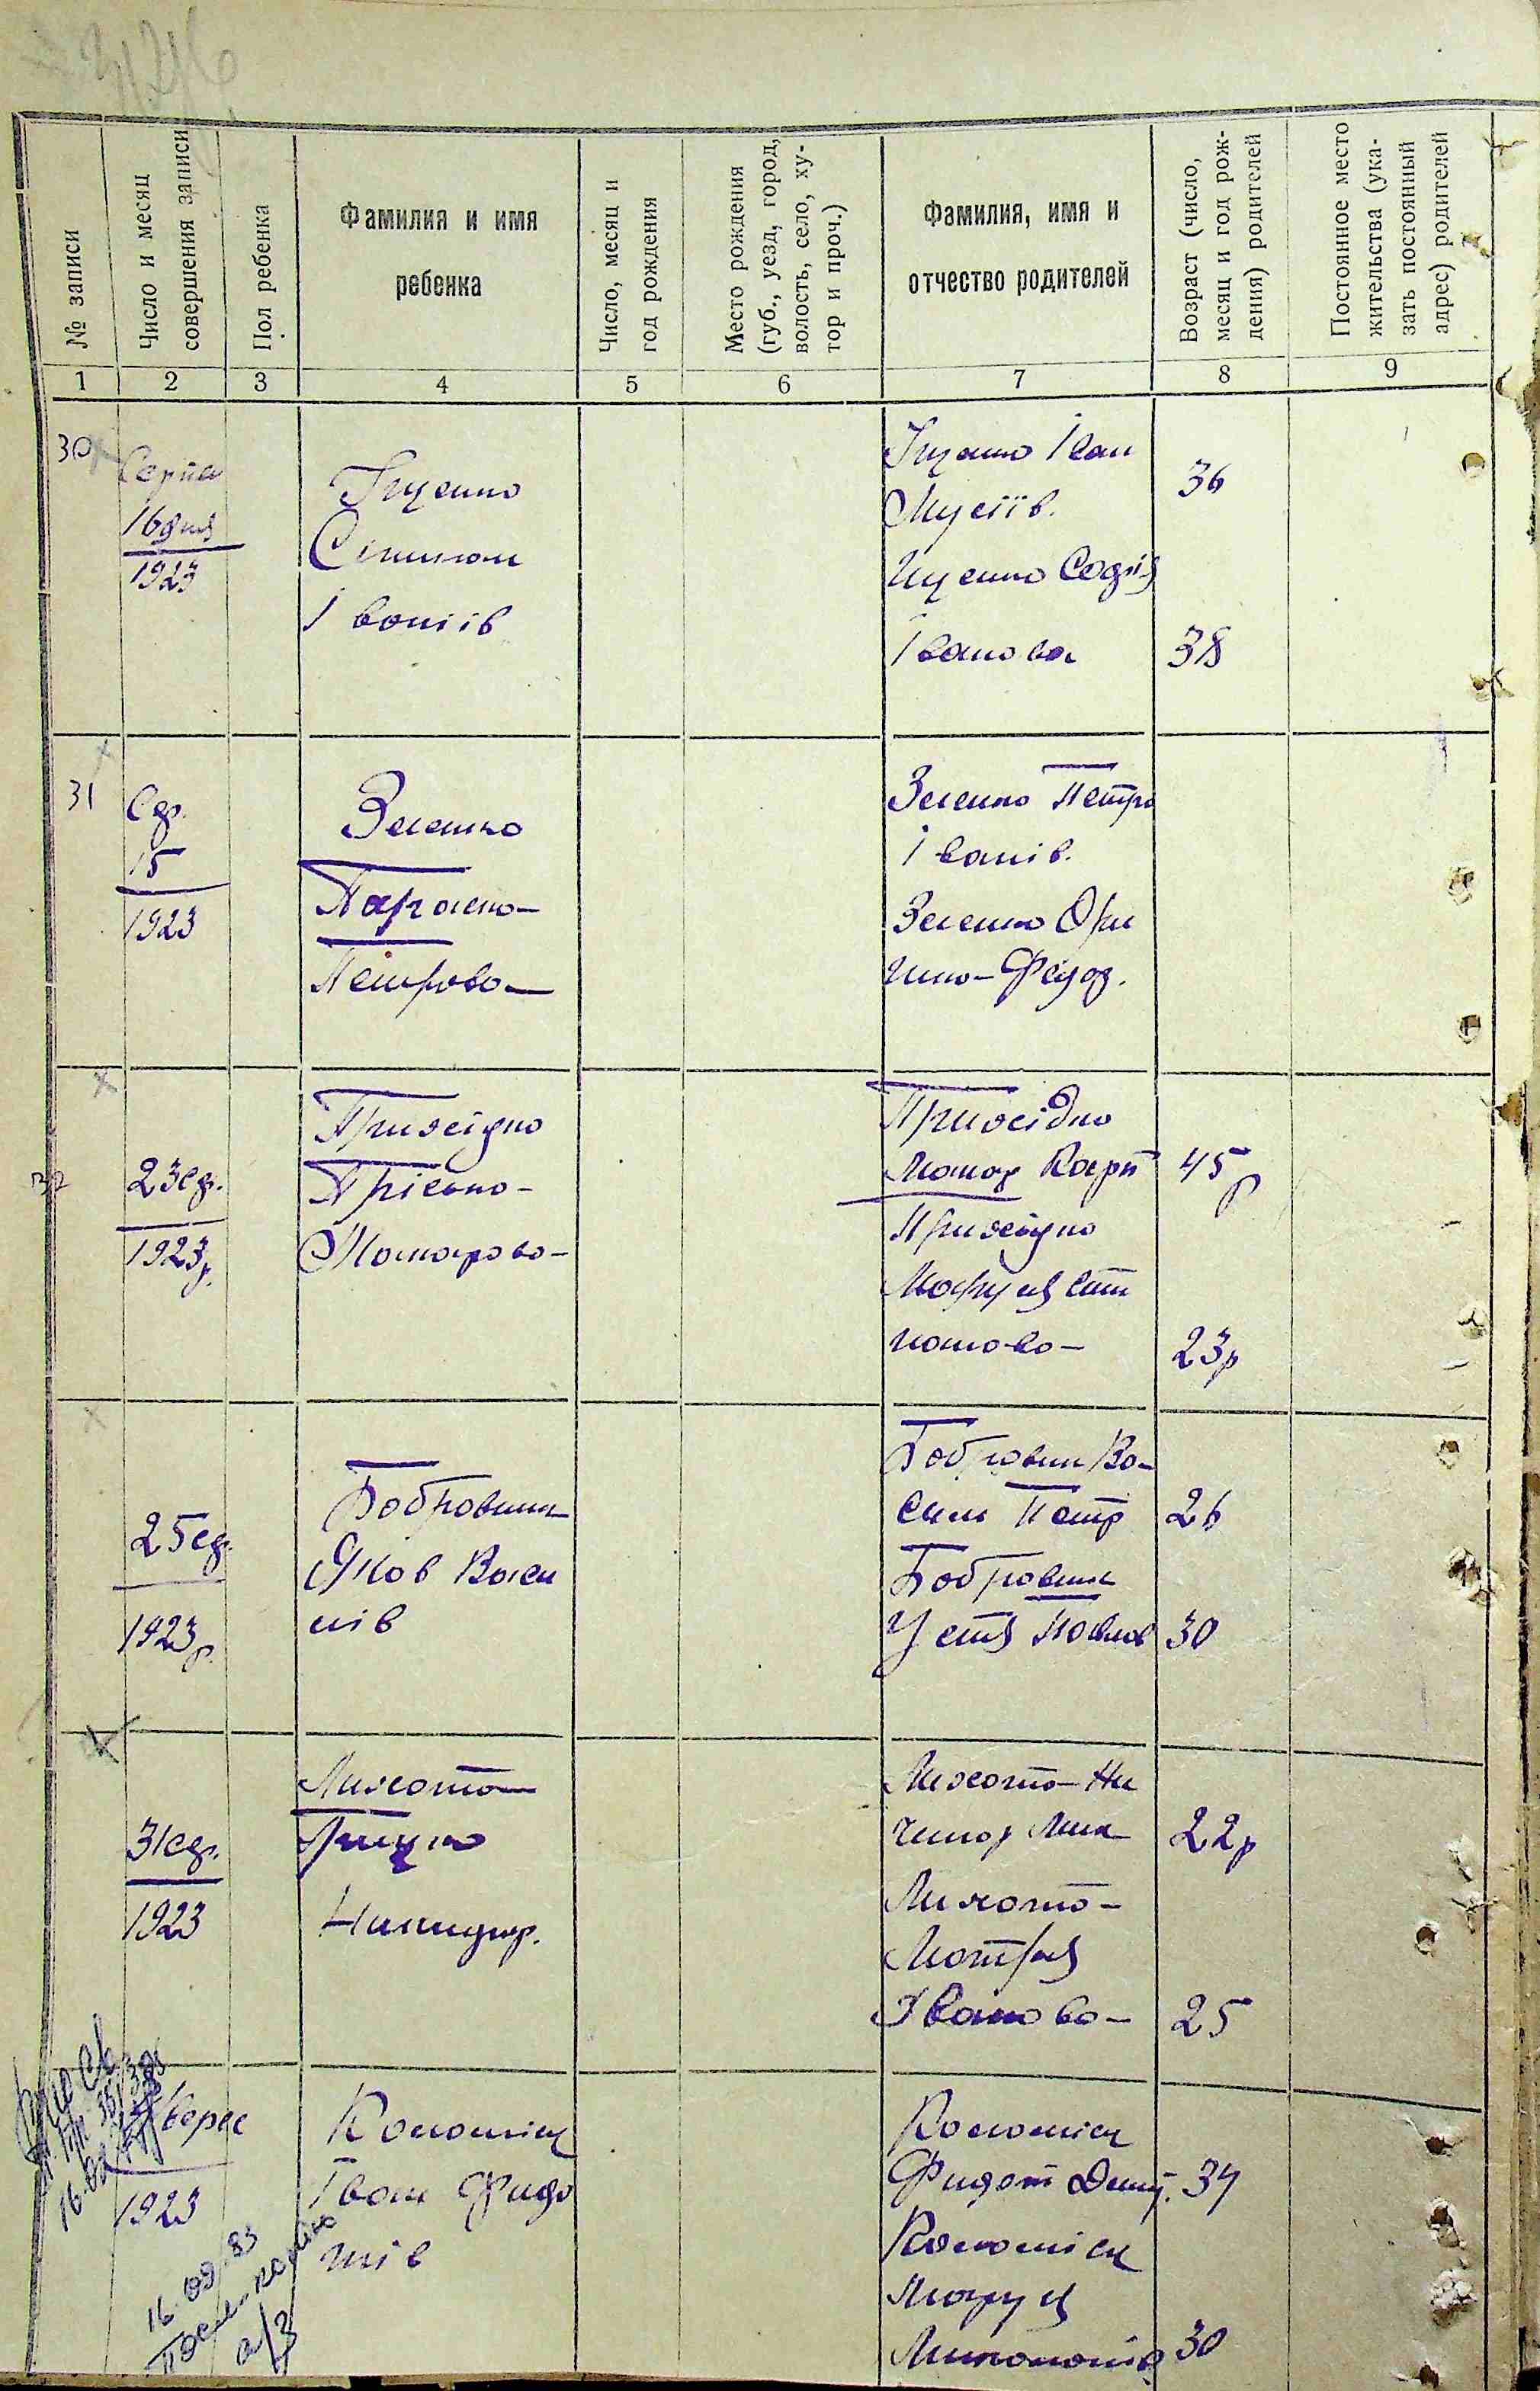 № записи
Число и месяц
совершения записи
Пол ребенка
Фамилия и имя
ребенка
Число, месяц и
год рождения
Место рождения
(губ., уезд, город,
волость, село, ху-
тор и проч.)
Фамилия, имя и
отчество родителей
Возраст (число,
месяц и год рож-
дения) родителей
Постоянное место
жительства (ука-
зать постоянный
адрес) родителей
1 2 3 4 5 6 7 8 9
30
Серпн
16 дня
1923
Іщенко
Іванів
Іщенко Іван
Мусіїв.
36
Іщенко Софія
Іванова
38
31
Ср.
15
1923
Зеленко
Параска
Петрова
Зеленко Петро
Іванів.
Зеленко Ори
на Федод.
32
23 ср.
1923р.
Прихідко
Макарова
Прихідко
Макар Карп
45р
Прихідко
Маруся Сте
панова
23р
25 ср.
1923р.
Бобровник
Яков Васи
лів
Бобровник Ва-
силь Петр
26
Бобровник
Устя Павлов
30
31 ср.
1923
Лихота
Грицко
Лихота Ни
чипор Мик
22р
Лихота
Мотря
Іванова
25
Верес
1923
Коломієц
Іван Федо
тів
Коломієц
Федот Дем.
34
Коломієц
Маруся
30
16.09.83